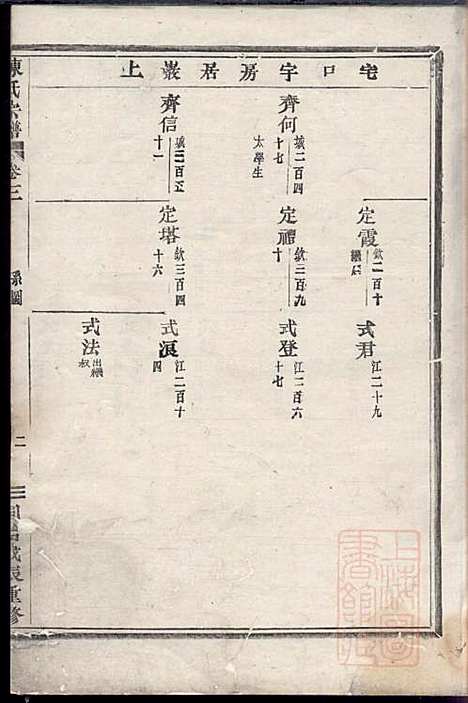 宅口字房居叢上
齊何
城二百四十七
太學生
齊信
城二百五十一
定霞
欽二百十
繼后
定禮
欽三百九十
定塔
欽三百四十六
式君
江二十九
式登
江二百六十七
式浪
江二百十四
式法
出繼叔
陳氏宗譜
卷三
系圖
二
同治戊辰重修